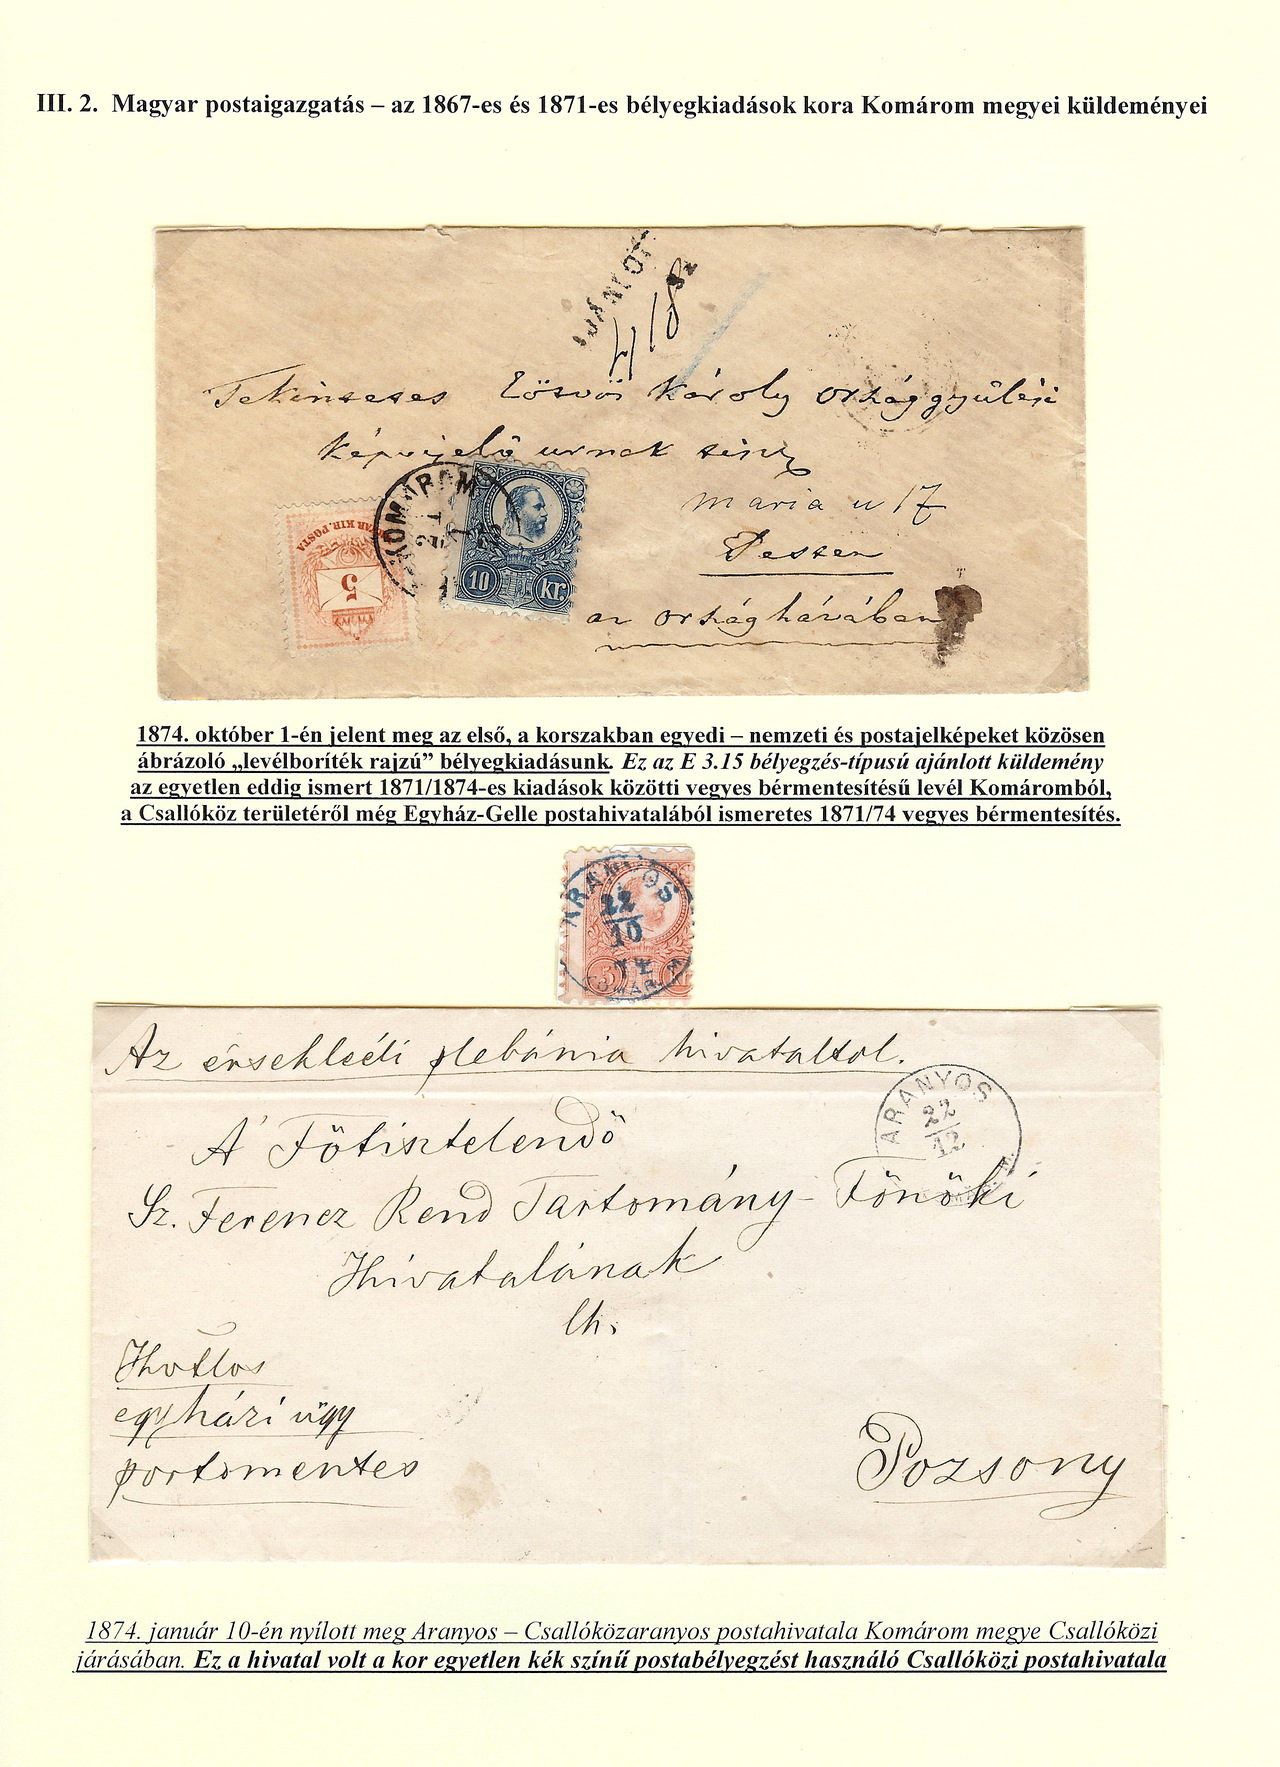 III. 2. Magyar postaigazgatás – az 1867-es és 1871-es bélyegkiadások kora Komárom megyei küldeményei
AJÁNLOTT
Tekintetes Eösvös Károly országgyűlési
képviselő urnak
maria u 17
Pesten
az országházában
KOMÁROM
MAGYAR KIR. POSTA
5
10 kr.
1874. október 1-én jelent meg az első, a korszakban egyedi – nemzeti és postajelképeket közösen
ábrázoló „levélboríték rajzú” bélyegkiadásunk. Ez az E 3.15 bélyegzés-típusú ajánlott küldemény
az egyetlen eddig ismert 1871/1874-es kiadások közötti vegyes bérmentesítésű levél Komáromból,
a Csallóköz területéről még Egyház-Gelle postahivatalából ismeretes 1871/74 vegyes bérmentesítés.
ARANYOS
22
10
74
KOMÁR. M
5
Az érsekléli plebánia hivataltol.
ARANYOS
22
12
A' Főtisztelendő
Sz. Ferencz Rend Tartomány-Főnöki
Hivatalának
Hivatalos
egyházi ügy
portomentes
Pozsony
1874. január 10-én nyílott meg Aranyos – Csallóközaranyos postahivatala Komárom megye Csallóközi
járásában. Ez a hivatal volt a kor egyetlen kék színű postabélyegzést használó Csallóközi postahivatala